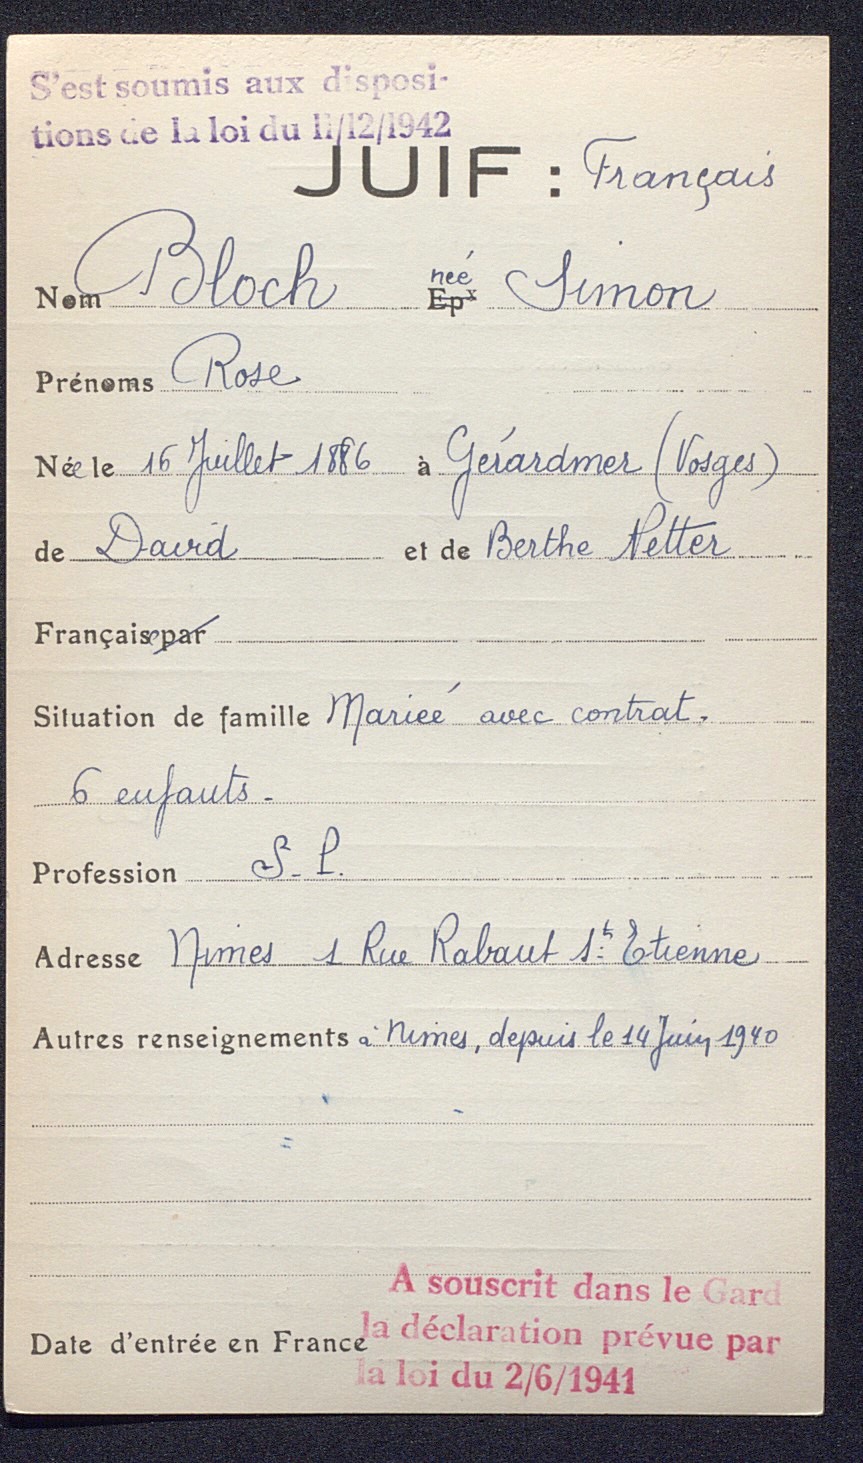 S'est soumis aux disposi-
tions de la loi du 11/12/1942
JUIF : Français
Nom Bloch née Epx Simon
Prénoms Rose
Née le 16 Juillet 1886 à Gérardmer (Vosges)
de David et de Berthe Netter
Française par
Situation de famille Mariée avec contrat.
6 enfants -
Profession S. P.
Adresse Nimes 1 Rue Rabaut St Etienne
Autres renseignements à Nimes, depuis le 14 Juin 1940
A souscrit dans le Gard
la déclaration prévue par
Date d'entrée en France
la loi du 2/6/1941